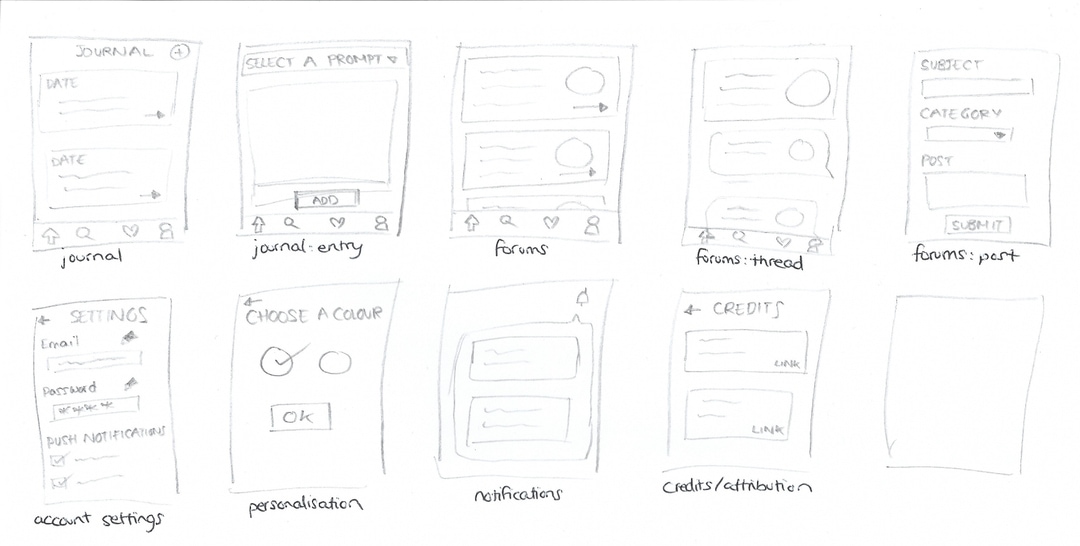 JOURNAL +
DATE
DATE
journal
SELECT A PROMPT
ADD
journal: entry
forums
forums: thread
SUBJECT
CATEGORY
POST
SUBMIT
forums: post
SETTINGS
Email
Password
****
PUSH NOTIFICATIONS
account settings
CHOOSE A COLOUR
OK
personalisation
notifications
CREDITS
LINK
LINK
credits/attribution